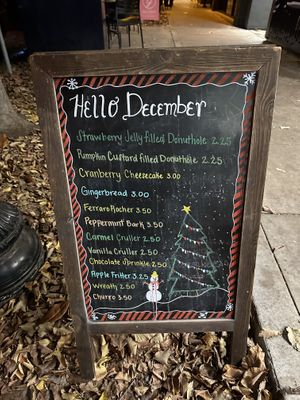 Hello December
Strawberry Jelly filled Donuthole 2.25
Pumpkin Custard filled Donuthole 2.25
Cranberry Cheesecake 3.00
Gingerbread 3.00
Ferraro Rocher 3.50
Peppermint Bark 3.50
Carmel Cruller 2.50
Vanilla Cruller 2.50
Chocolate Sprinkle 2.50
Apple Fritter 3.25
Wreath 2.50
Churro 3.50